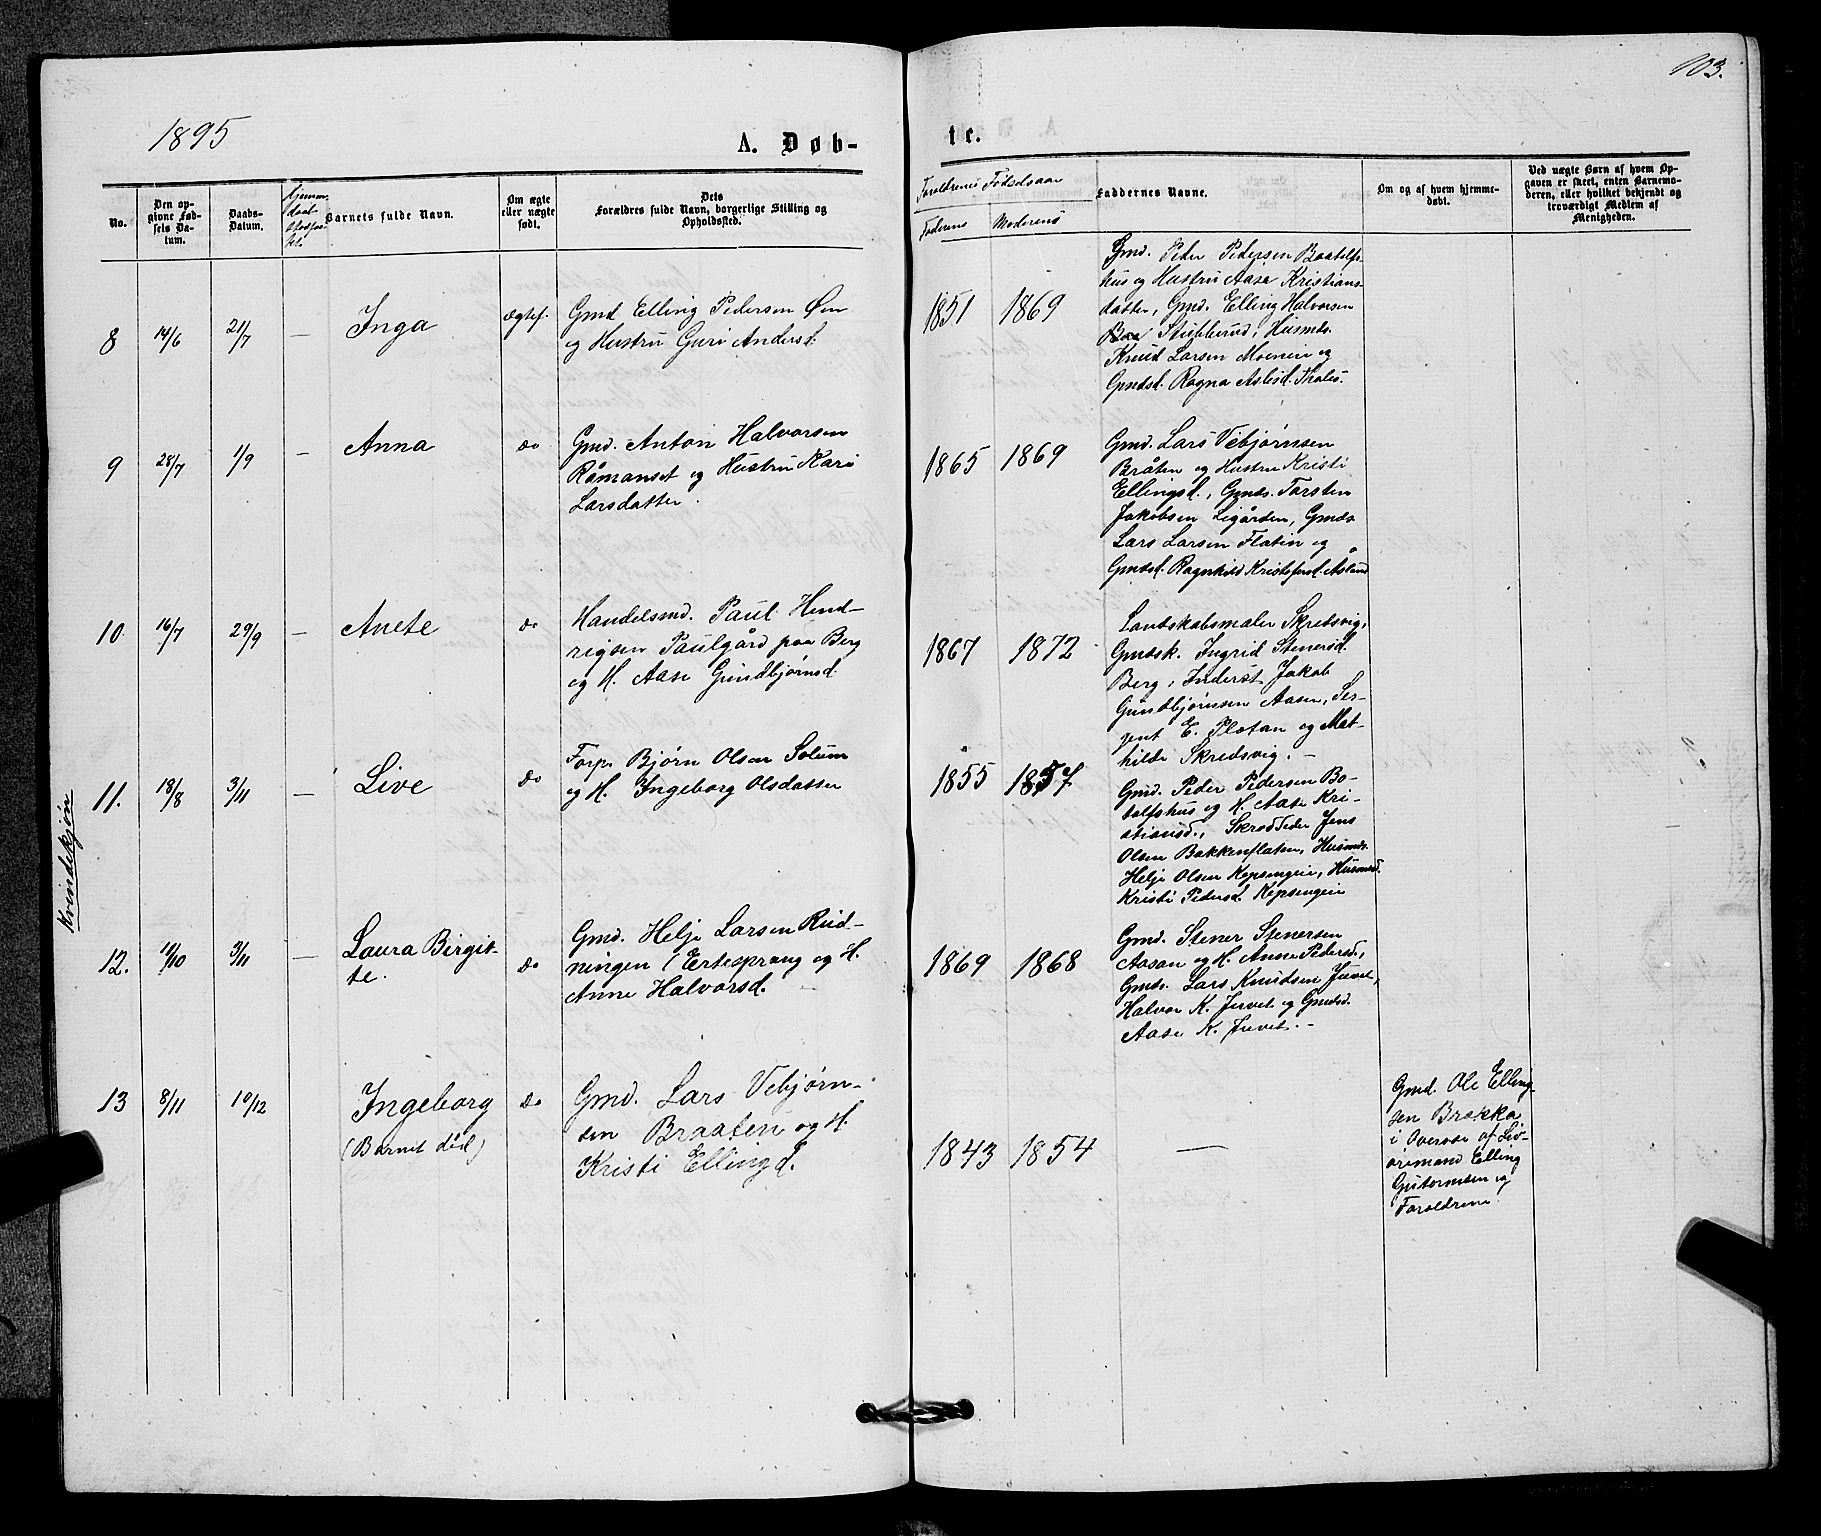 1895
103.
A. Døb-
te.
No.
Den op-
givne Fød-
sels Da-
tum.
Daabs-
Datum.
Barnets fulde Navn.
Om ægte
eller uægte
født.
Dets
Forældres fulde Navn, borgerlige Stilling og
Opholdssted.
Forældrenes Fødselsaar
Faderens
Moderens
Faddernes Navne.
Om og af hvem hjemme-
døbt.
Ved uægte Børn af hvem Op-
gaven er skeet, enten Barnemo-
deren, eller hvilket bekjendt og
troværdigt Medlem af
Menigheden.
Kvindekjøn
8
14/6
21/7
—
Inga
ægtef.
Gmd Elling Pedersen Øen
og Hustru Guri Andersd.
1851
1869
Gmd. Peder Pedersen Baatolfs-
hus og Hustru Aase Kristians-
datter, Gmd. Elling Halvorsen
Stubberud, Husmds.
Knud Larsen Moenei og
Gmdsd. Ragna Aslesd. Tholes.
9
28/7
1/9
—
Anna
do
Gmd. Anton Halvorsen
Råmanset og Hustru Kari
Larsdatter.
1865
1869
Gmd. Lars Vebjørnsen
Bråten og Hustru Kristi
Ellingsd., Gmds. Torsten
Jakobsen Ligården, Gmds
Lars Larsen Flatin og
Gmdsd. Ragnhild Kristofersd. Åsland
10
16/7
29/9
—
Anete
do
Handelsmd. Paul Hend-
rigsen Paulgård paa Berg
og H. Aase Gundbjørnsd.
1867
1872
Landskabsmaler Skredsvig,
Gmdsk. Ingrid Stenersd.
Berg, Inderst Jakob
Gundbjørnsen Aasen, Ser-
gent E. Plotan og Mat-
hilde Skredsvig. —
11.
18/8
3/11
—
Live
do
Forp. Bjørn Olsen Solum
og H. Ingeborg Olsdatter
1855
1857
Gmd. Peder Pedersen Bo-
tolfshus og H. Aase Kri-
stiansd., Skrædder Jens
Olsen Bakkenflaten, Husmds.
Helje Olsen Kopsengein, Husmsd.
Kristi Pedersd. Kopsengein
12.
11/10
3/11
—
Laura Birgit-
te.
do
Gmd. Helje Larsen Rud-
ningen (Ertesprang og H.
Anne Halvorsd.
1869
1868
Gmd. Stener Stenersen
Aasan og H. Anne Pedersd.,
Gmds. Lars Knudsen Juvet,
Halvor K. Juvet og Gmdsd.
Aase K. Juvet. —
13
8/11
10/12
Ingeborg
(Barnet död)
do
Gmd. Lars Vebjørn-
sen Braaten og H.
Kristi Ellingd.
1843
1854
—
Gmd. Ole Elling-
sen Brakka
i Overvær af
Elling
Gutormsen og
Forældrene